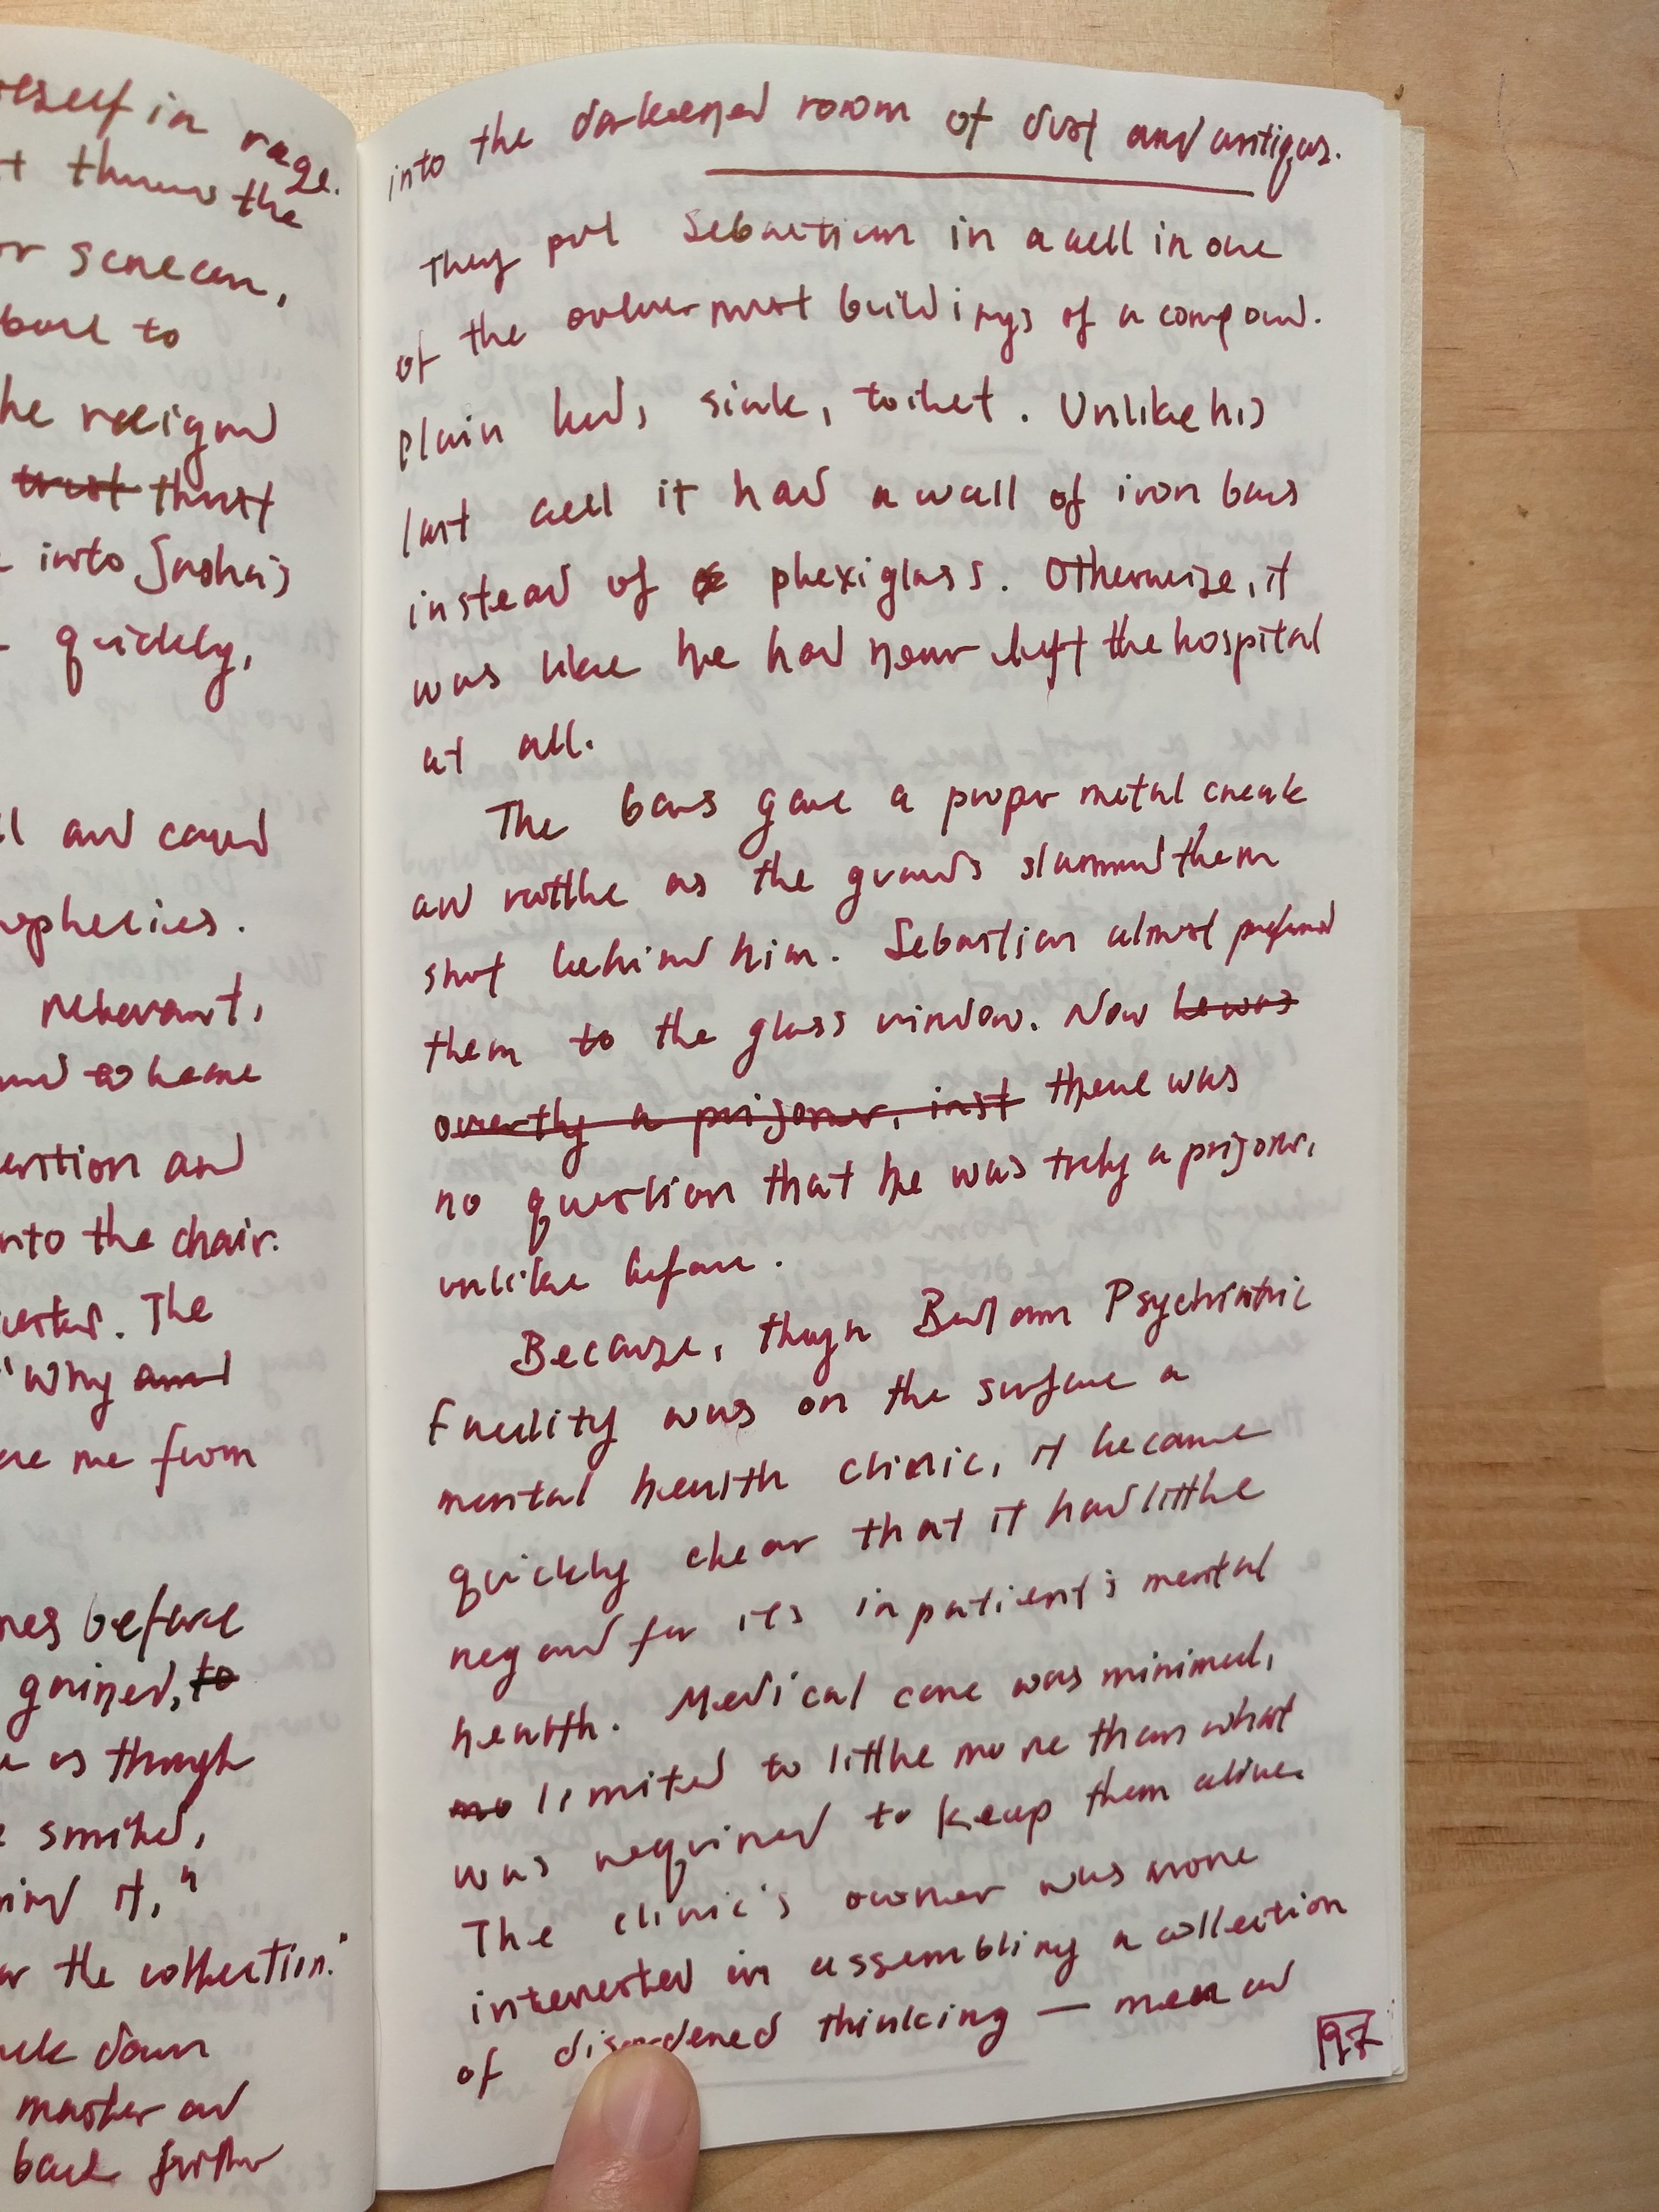 rage.
the
screen,
to
he resigned
trust thrust
into Sasha's
quickly,
and cared
relevant,
and
into the chair.
The
"Why and
me from
before
gained, to
as though
smiled,
it,"
the collection."
down
master and
back further
into the darkened room of dust and antiques.
They put Sebastian in a cell in one
of the outermost buildings of a compound.
Plain bed, sink, toilet. Unlike his
last cell it had a wall of iron bars
instead of plexiglass. Otherwise, it
was like he had never left the hospital
at all.
The bars gave a proper metal creak
and rattle as the guards slammed them
shut behind him. Sebastian almost preferred
them to the glass window. Now he was
overtly a prisoner, inst there was
no question that he was truly a prisoner,
unlike before.
Because, though Psychiatric
Facility was on the surface a
mental health clinic, it became
quickly clear that it had little
regard for its inpatient's mental
health. Medical care was minimal,
mo limited to little more than what
was required to keep them alive.
The clinic's owner was more
interested in assembling a collection
of disordered thinking — men and
97